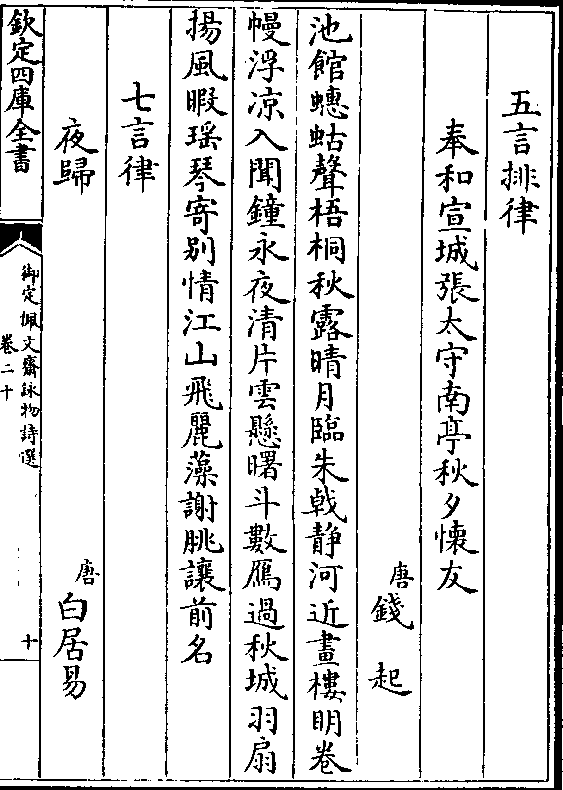 五言排律
奉和宣城張太守南亭秋夕懷友
唐錢起
池館蟪蛄聲梧桐秋露晴月臨朱戟静河近畫樓明卷
幔浮凉入聞鐘永夜清片雲懸曙斗數鴈過秋城羽扇
揚風暇瑶琴寄别情江山飛麗藻謝朓讓前名
七言律
夜歸
唐白居易
欽定四庫全書
御定佩文齋詠物詩選
卷二十
十